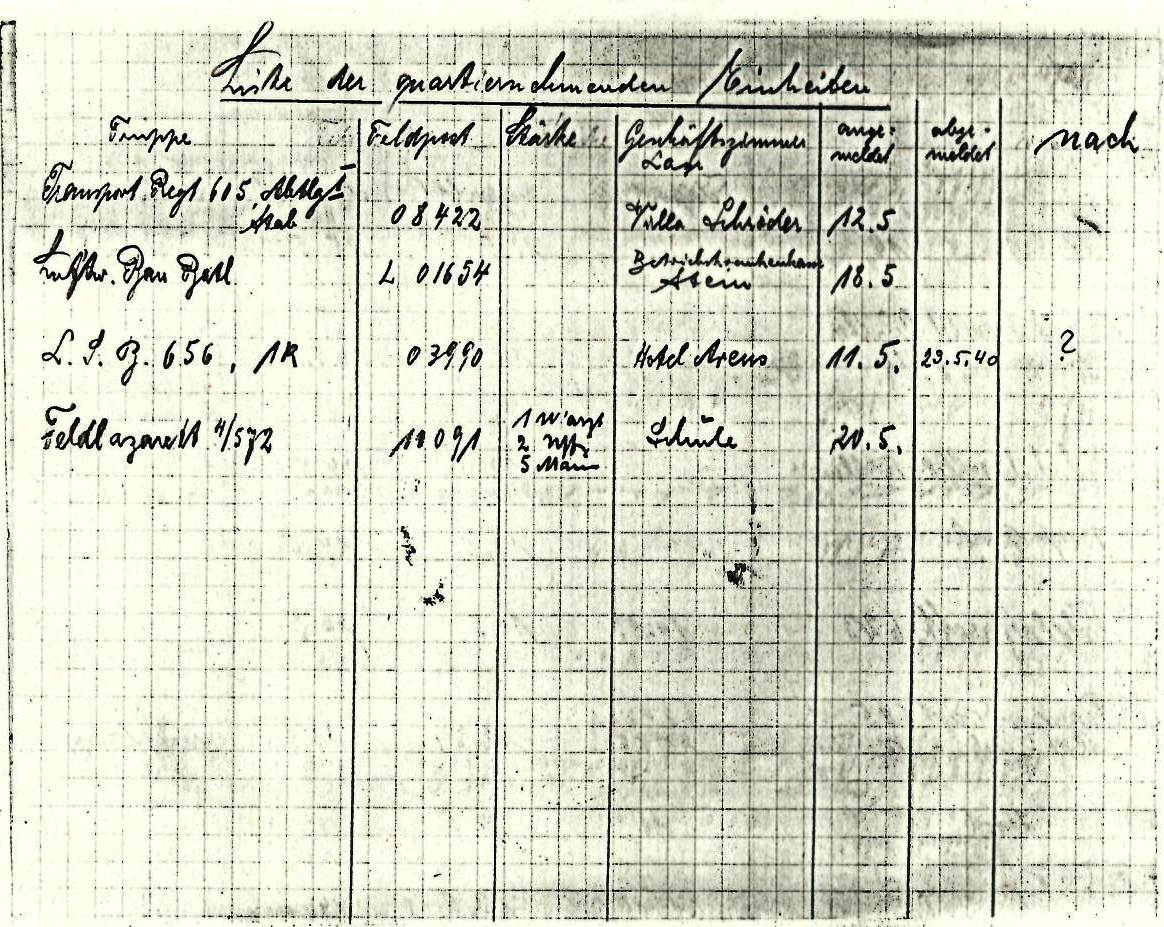 Liste der quartiernehmenden Einheiten
Truppe Feldpost Stärke Geschäftszimmer ange- abge- nach
Lage meldet meldet
Transport Regt 605, Abtlgs
Stab 08422 Villa Schröder 12.5
Luftw. Bau Batl. L 01654 Betriebskrankenhaus 18.5
Stein
L. S. B. 656, 1K 03990 Hotel Arens 11.5. 23.5.40 ?
Feldlazarett 4/572 11091 1 20.5.
2 Uffz
5 Mann